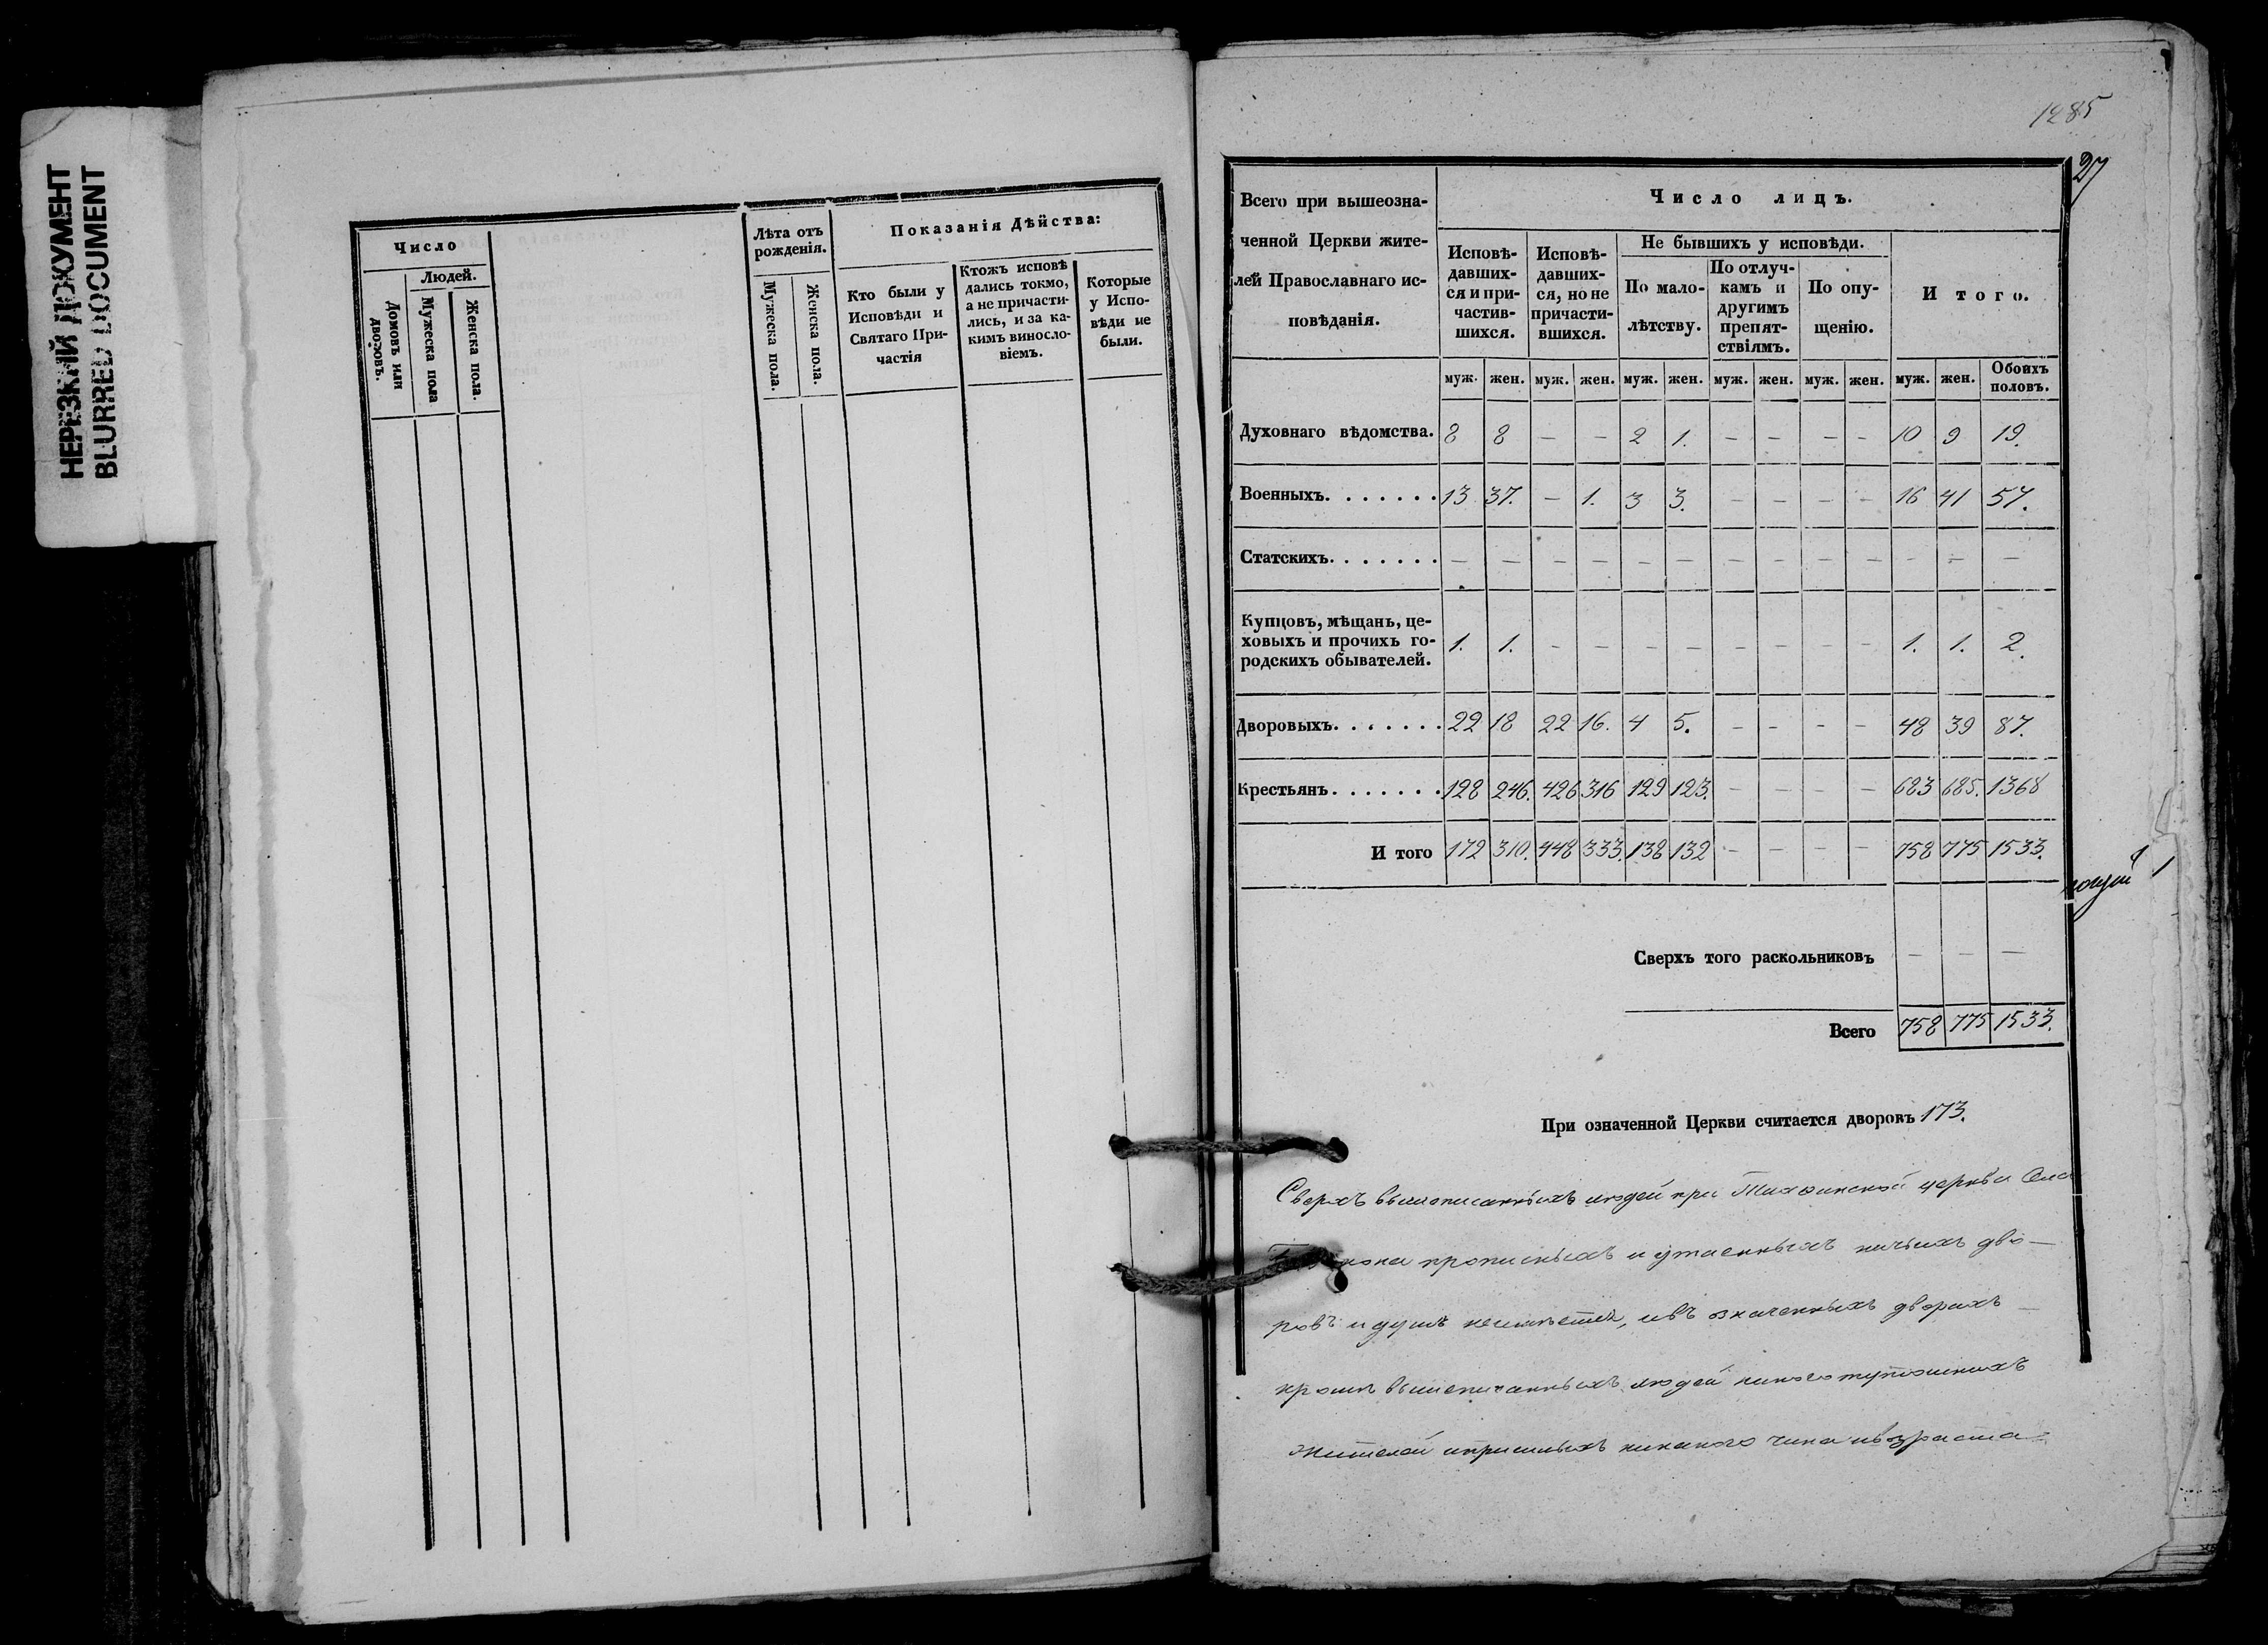 НЕРЕЗКИЙ ДОКУМЕНТ
BLURRED DOCUMENT
Число
Людей.
Домовъ или дворовъ.
Мужеска пола
Женска пола.
Лѣта отъ рожденія.
Мужеска пола.
Женска пола.
Показанія Дѣйства:
Кто были у
Исповѣди и
Святаго При-
частія
Ктожъ исповѣ
дались токмо,
а не причасти-
лись, и за ка-
кимъ винословіемъ.
Которые
у Испо-
вѣди не
были.
1285
27
Всего при вышеозна-
ченной Церкви жите-
лей Православнаго ис-
повѣданія.
Число лицъ.
Исповѣ-
давших-
ся и при-
частив-
шихся.
Исповѣ-
давших-
ся, но не
причасти-
вшихся.
Не бывшихъ у исповѣди.
По мало-
лѣтству.
По отлуч-
камъ и
другимъ
препят-
ствіямъ.
По опу-
щенію.
И того.
муж. жен. муж. жен. муж. жен. муж. жен. муж. жен. муж. жен. Обоихъ половъ.
Духовнаго вѣдомства. 8 8 — — 2 1. — — — — 10 9 19.
Военныхъ. . . . . . . 13 37. — 1. 3 3. — — — — 16 41 57.
Статскихъ. . . . . . . — — — — — — — — — — — — —
Купцовъ, мѣщань, це-
ховыхъ и прочихъ го-
родскихъ обывателей. 1. 1. — — — — — — — — 1. 1. 2.
Дворовыхъ. . . . . . . 22 18 22 16. 4 5. — — — — 48 39 87.
Крестьянъ. . . . . . . 128 246. 426 316 129 123. — — — — 683 685. 1368
И того 172 310. 448 333. 138 132 — — — — 758 775 1533.
Сверхъ того раскольниковъ — — —
Всего 758 775 1533.
При означенной Церкви считается дворовъ 173.
Сверхъ вышеписанныхъ людей при Тихвинской церкви
прописныхъ и утаенныхъ ничьихъ дво—
ровъ и душъ неимѣется, ивъ означенныхъ дворахъ —
кромѣ вышеписанныхъ людей никого тутошнихъ
жителей ипришлыхъ никакого чина ивозраста